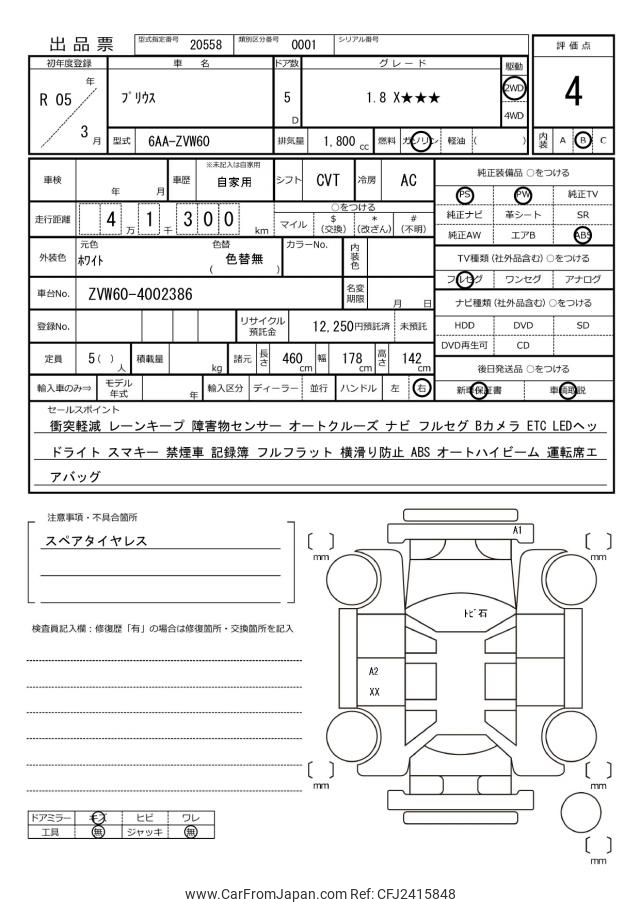 出品票
型式指定番号 20558 類別区分番号 0001 シリアル番号
評価点
4
内装 A B C
初年度登録 車名 ドア数 グレード 駆動
R 05 年 3 月
プリウス
5 D
1.8 X★★★
2WD
4WD
型式 6AA-ZVW60 排気量 1,800 cc 燃料 ガソリン 軽油 ( )
車検 年 月 車歴 ※未記入は自家用 自家用 シフト CVT 冷房 AC
走行距離 4 万 1 千 3 0 0 km
○をつける
マイル $ (交換) * (改ざん) # (不明)
外装色 元色 ホワイト 色替 ( 色替無 ) カラーNo. 内装色
車台No. ZVW60-4002386 名変期限 月 日
登録No. リサイクル預託金 12,250円預託済 未預託
定員 5( ) 人 積載量 kg 諸元 長さ 460 cm 幅 178 cm 高さ 142 cm
輸入車のみ⇒ モデル年式 年 輸入区分 ディーラー 並行 ハンドル 左 右
純正装備品 ○をつける
PS PW 純正TV
純正ナビ 革シート SR
純正AW エアB ABS
TV種類(社外品含む) ○をつける
フルセグ ワンセグ アナログ
ナビ種類(社外品含む) ○をつける
HDD DVD SD
DVD再生可 CD
後日発送品 ○をつける
新車保証書 車輌取説
セールスポイント
衝突軽減 レーンキープ 障害物センサー オートクルーズ ナビ フルセグ Bカメラ ETC LEDヘッ
ドライト スマキー 禁煙車 記録簿 フルフラット 横滑り防止 ABS オートハイビーム 運転席エ
アバッグ
注意事項・不具合箇所
スペアタイヤレス
検査員記入欄：修復歴「有」の場合は修復箇所・交換箇所を記入
ドアミラー キズ ヒビ ワレ
工具 無 ジャッキ 無
A1
mm
mm
トビ石
A2
XX
mm
mm
mm
www.CarFromJapan.com Ref: CFJ2415848